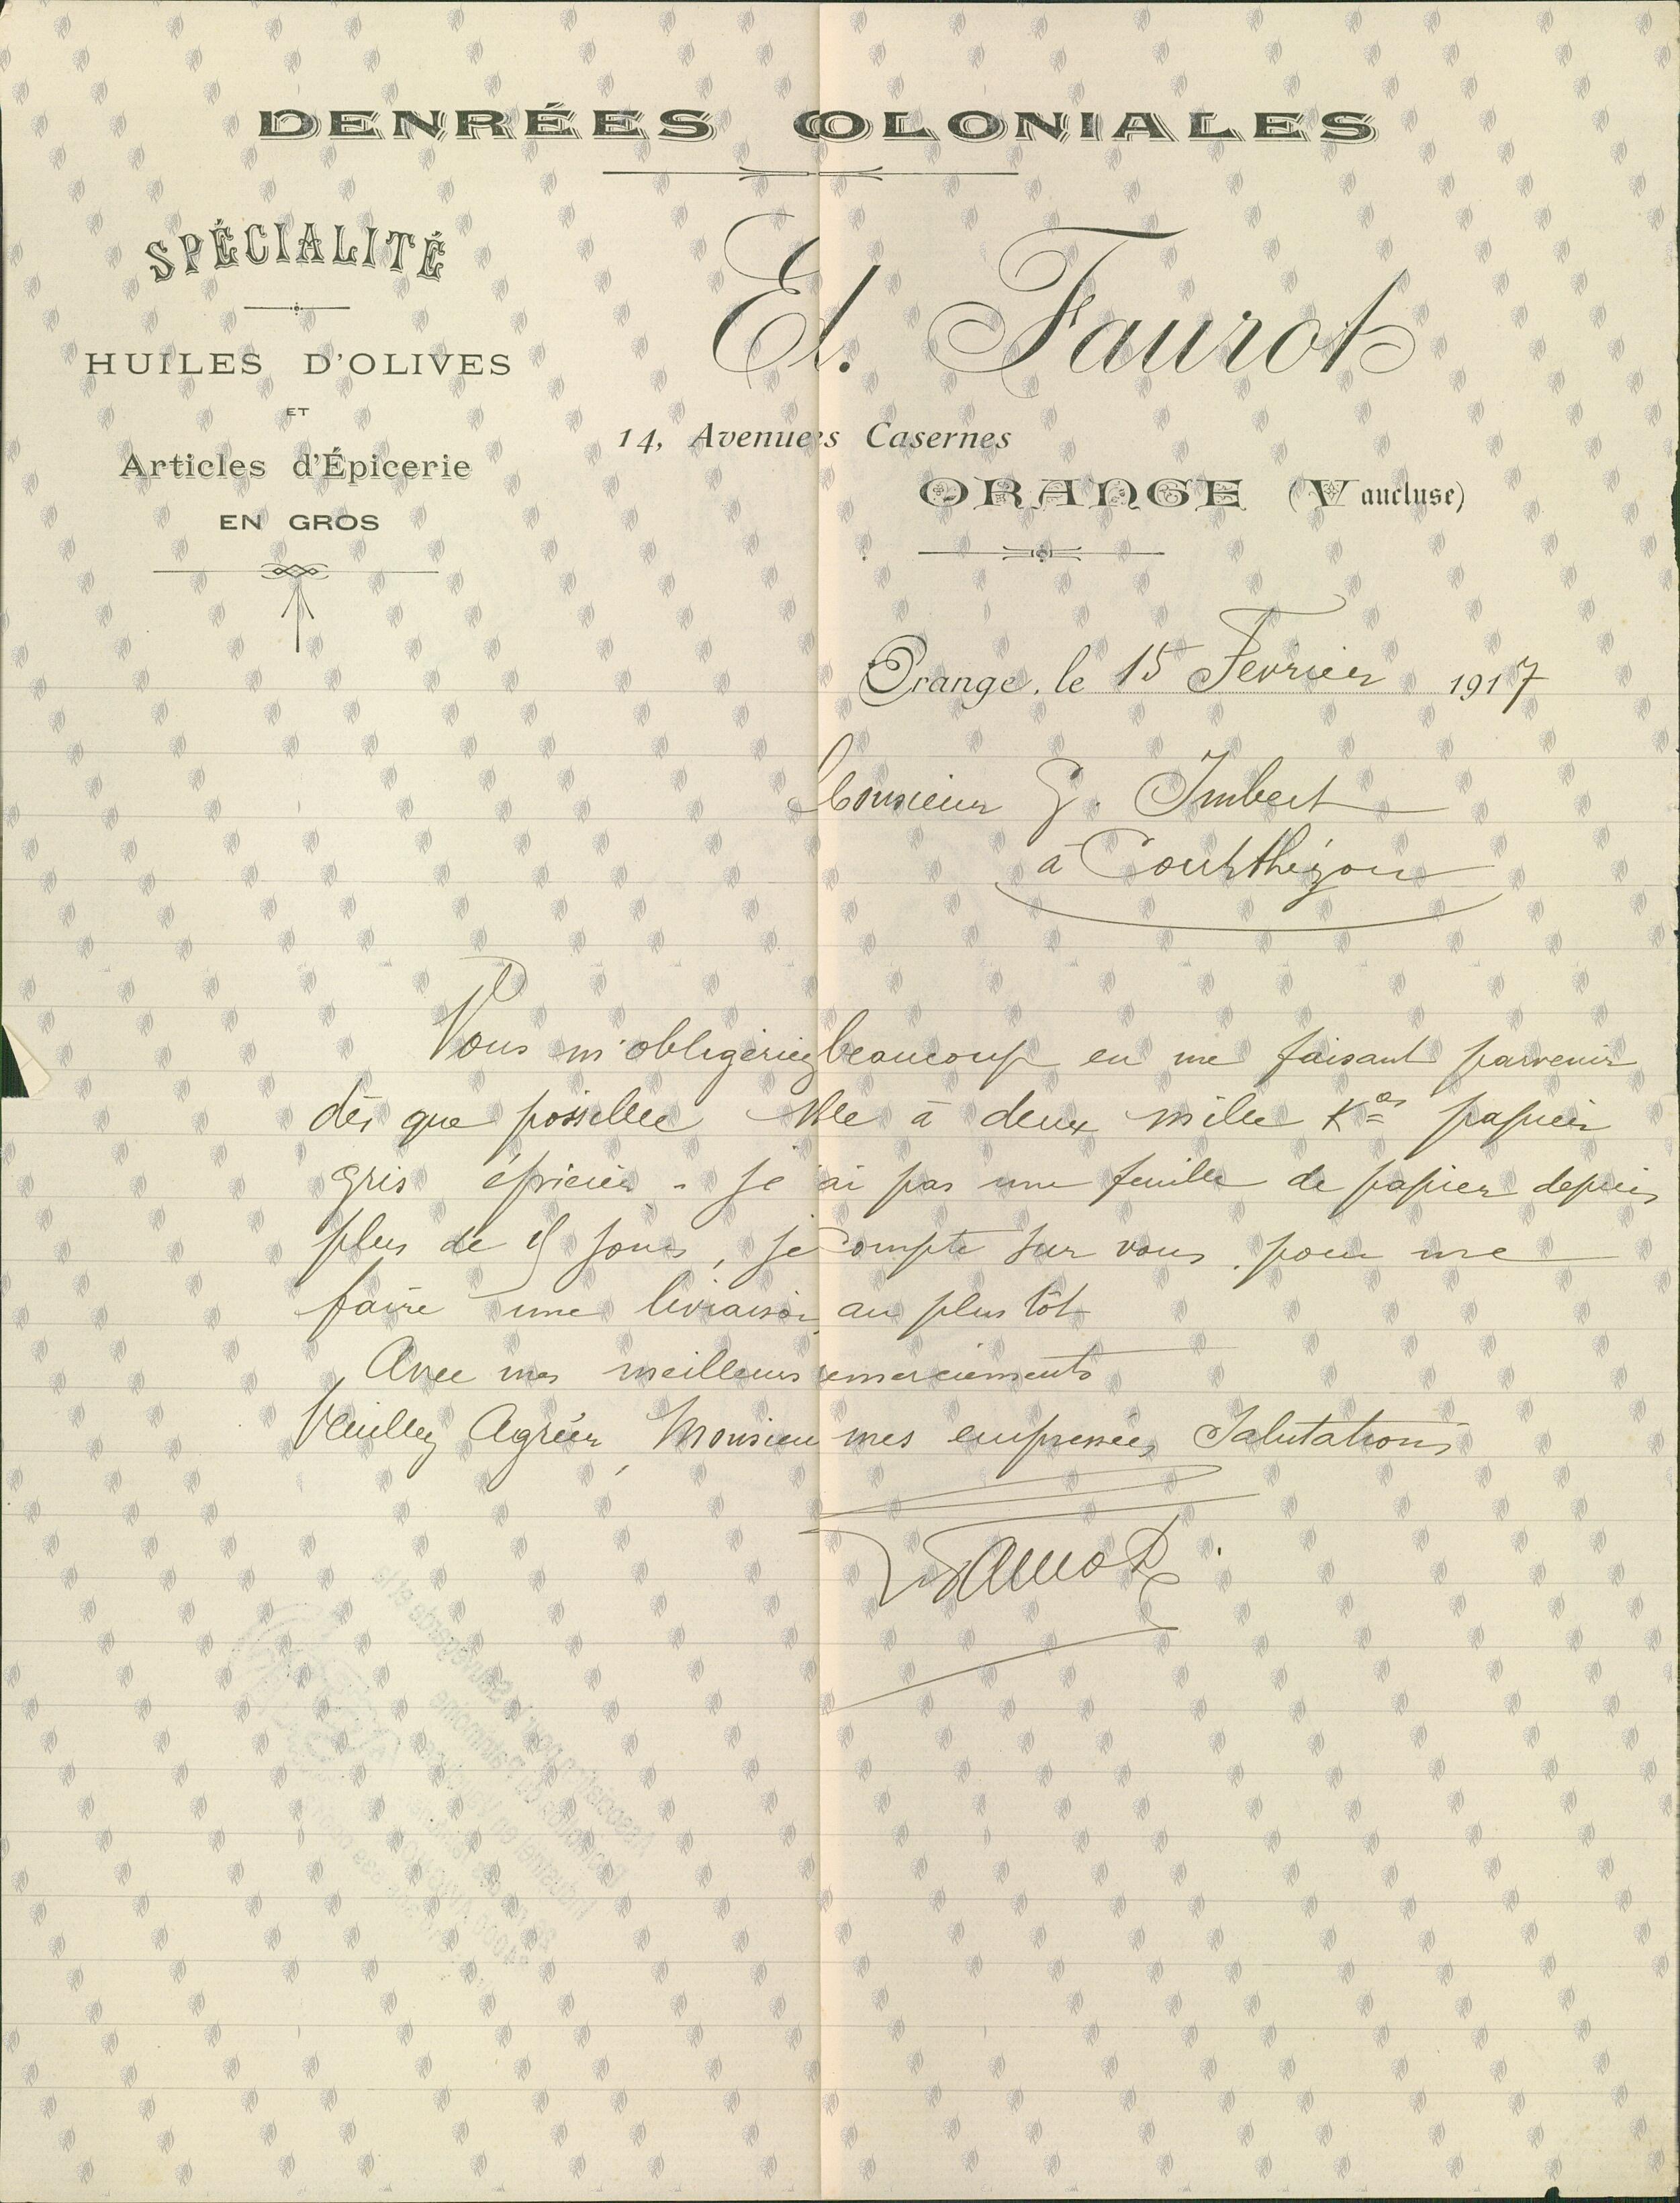 DENRÉES COLONIALES
SPÉCIALITÉ
HUILES D'OLIVES
ET
Articles d'Épicerie
EN GROS
El. Faurot
14, Avenue s Casernes
ORANGE (Vaucluse)
Orange, le 15 Fevrier 1917
Monsieur G. Imbert
à Courthézon
Vous m'obligeriez beaucoup en me faisant parvenir
dès que possible Mlle à deux mille Kos papier
gris épicier - je ai pas une feuille de papier depuis
plus de jours, je compte sur vous pour me
faire une livraison au plus tôt
Avec mes meilleurs remerciements
Veuillez Agréer, Monsieur mes empressées Salutations
Faurot
Association pour la sauvegarde et la
promotion du patrimoine
industriel en Vaucluse